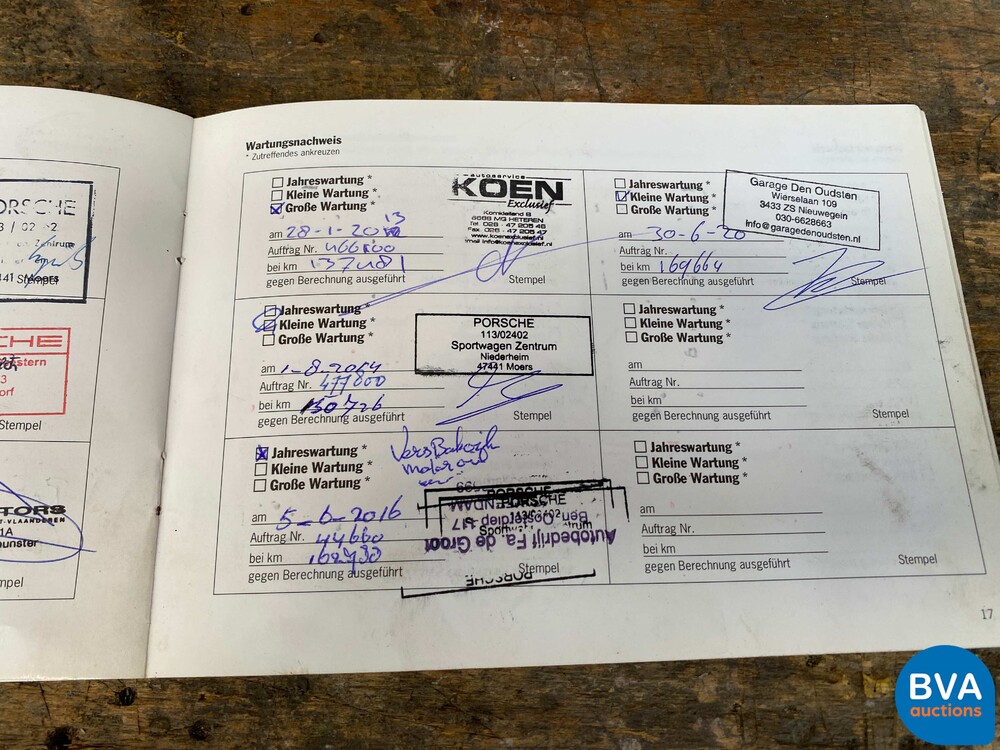 PORSCHE
Moers
Stempel
CHE
Stempel
TORS
T-VLAANDEREN
1A
munster
Wartungsnachweis
* Zutreffendes ankreuzen
Jahreswartung *
Kleine Wartung *
Große Wartung *
am 28-1-2013
Auftrag Nr. 466100
bei km 137481
gegen Berechnung ausgeführt
Stempel
autoservice
KOEN
Exclusief
6666 MG HETEREN
www.koenexclusief.nl
Jahreswartung *
Kleine Wartung *
Große Wartung *
am 30-6-20
Auftrag Nr.
bei km 169664
gegen Berechnung ausgeführt
Stempel
Garage Den Oudsten
Wierselaan 109
3433 ZS Nieuwegein
030-6628663
info@garagedenoudsten.nl
Jahreswartung *
Kleine Wartung *
Große Wartung *
am 1-8-2014
Auftrag Nr. 477800
bei km 150726
gegen Berechnung ausgeführt
Stempel
PORSCHE
113/02402
Sportwagen Zentrum
Niederrheim
47441 Moers
Jahreswartung *
Kleine Wartung *
Große Wartung *
am
Auftrag Nr.
bei km
gegen Berechnung ausgeführt
Stempel
Jahreswartung *
Kleine Wartung *
Große Wartung *
am 5-6-2016
Auftrag Nr. 44660
bei km
gegen Berechnung ausgeführt
Stempel
PORSCHE
Autobedrijf Fa. de Groot
Ben. Oosterdiep
PORSCHE
Jahreswartung *
Kleine Wartung *
Große Wartung *
am
Auftrag Nr.
bei km
gegen Berechnung ausgeführt
Stempel
17
BVA
auctions